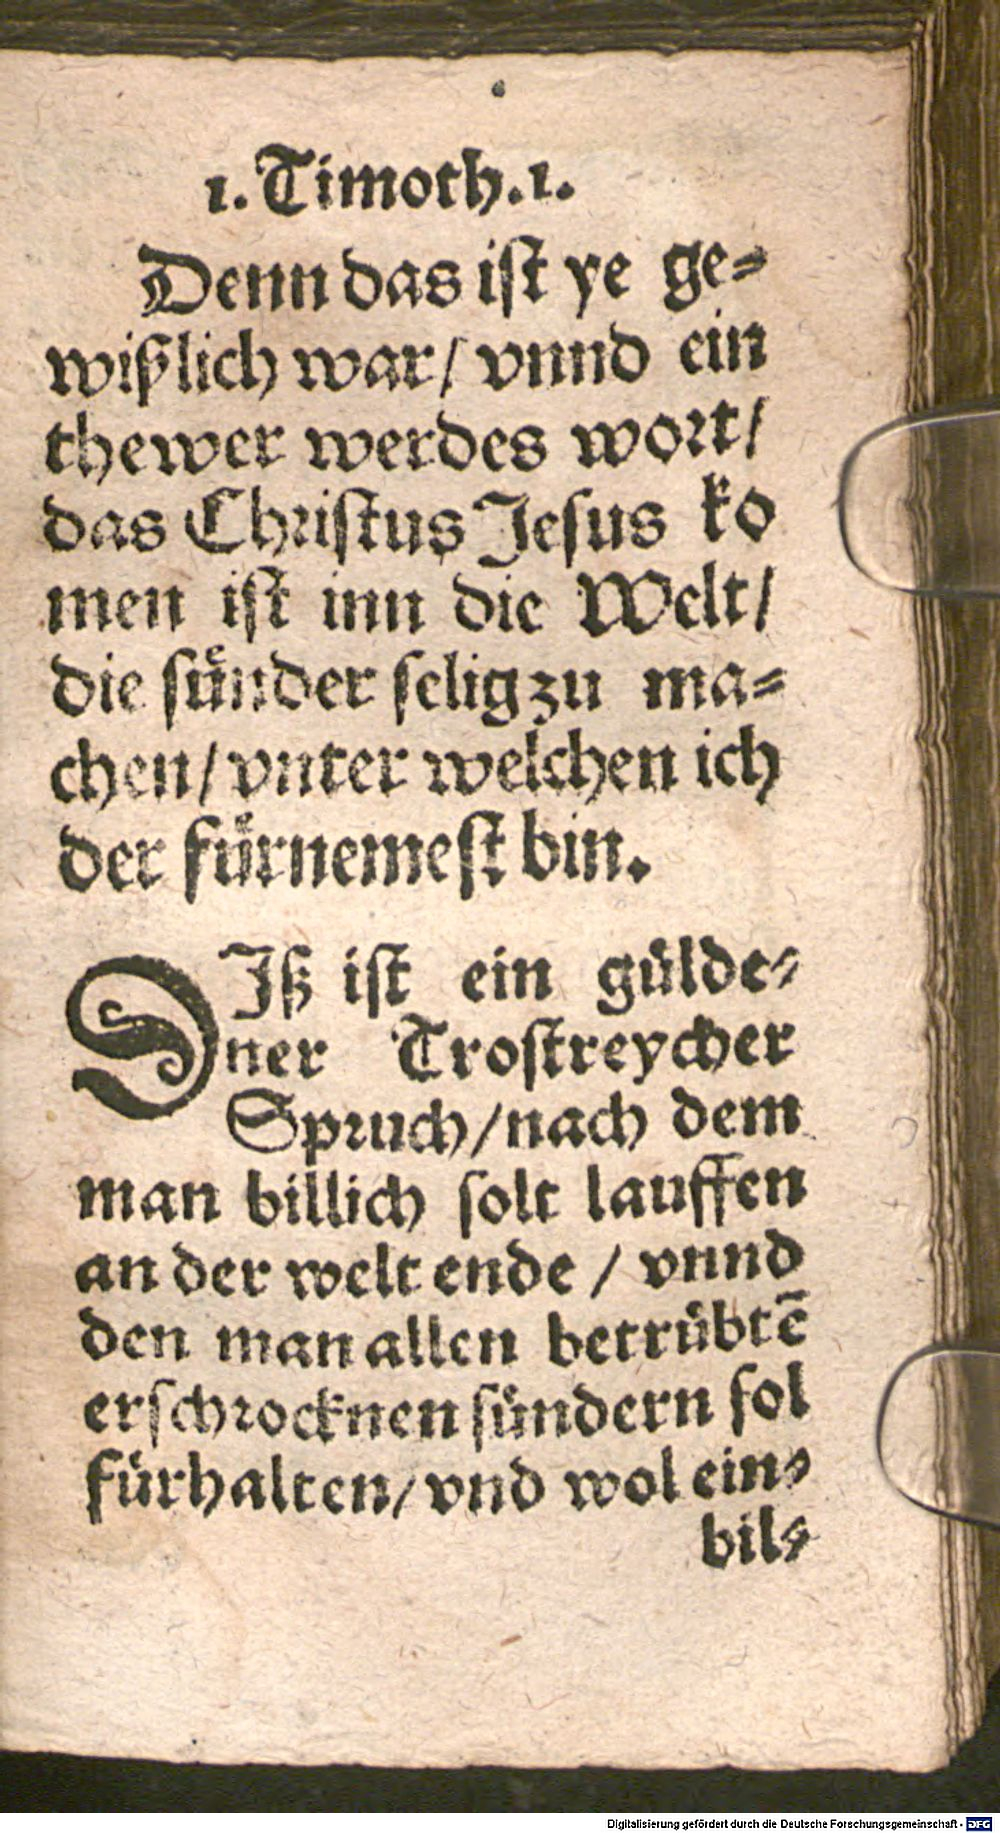 1. Timoth. 1.
Denn das ist ye ge-
wißlich war/ vnnd ein
thewer werdes wort/
das Christus Jesus ko
men ist inn die Welt/
die suͤnder selig zu ma-
chen/ vnter welchen ich
der fuͤrnemest bin.
DIß ist ein guͤlde-
ner Trostreycher
Spruch/ nach dem
man billich solt lauffen
an der welt ende / vnnd
den man allen betruͤbtē
erschrocknen suͤndern sol
fuͤrhalten/ vnd wol ein-
bil-
Digitalisierung gefördert durch die Deutsche Forschungsgemeinschaft - DFG